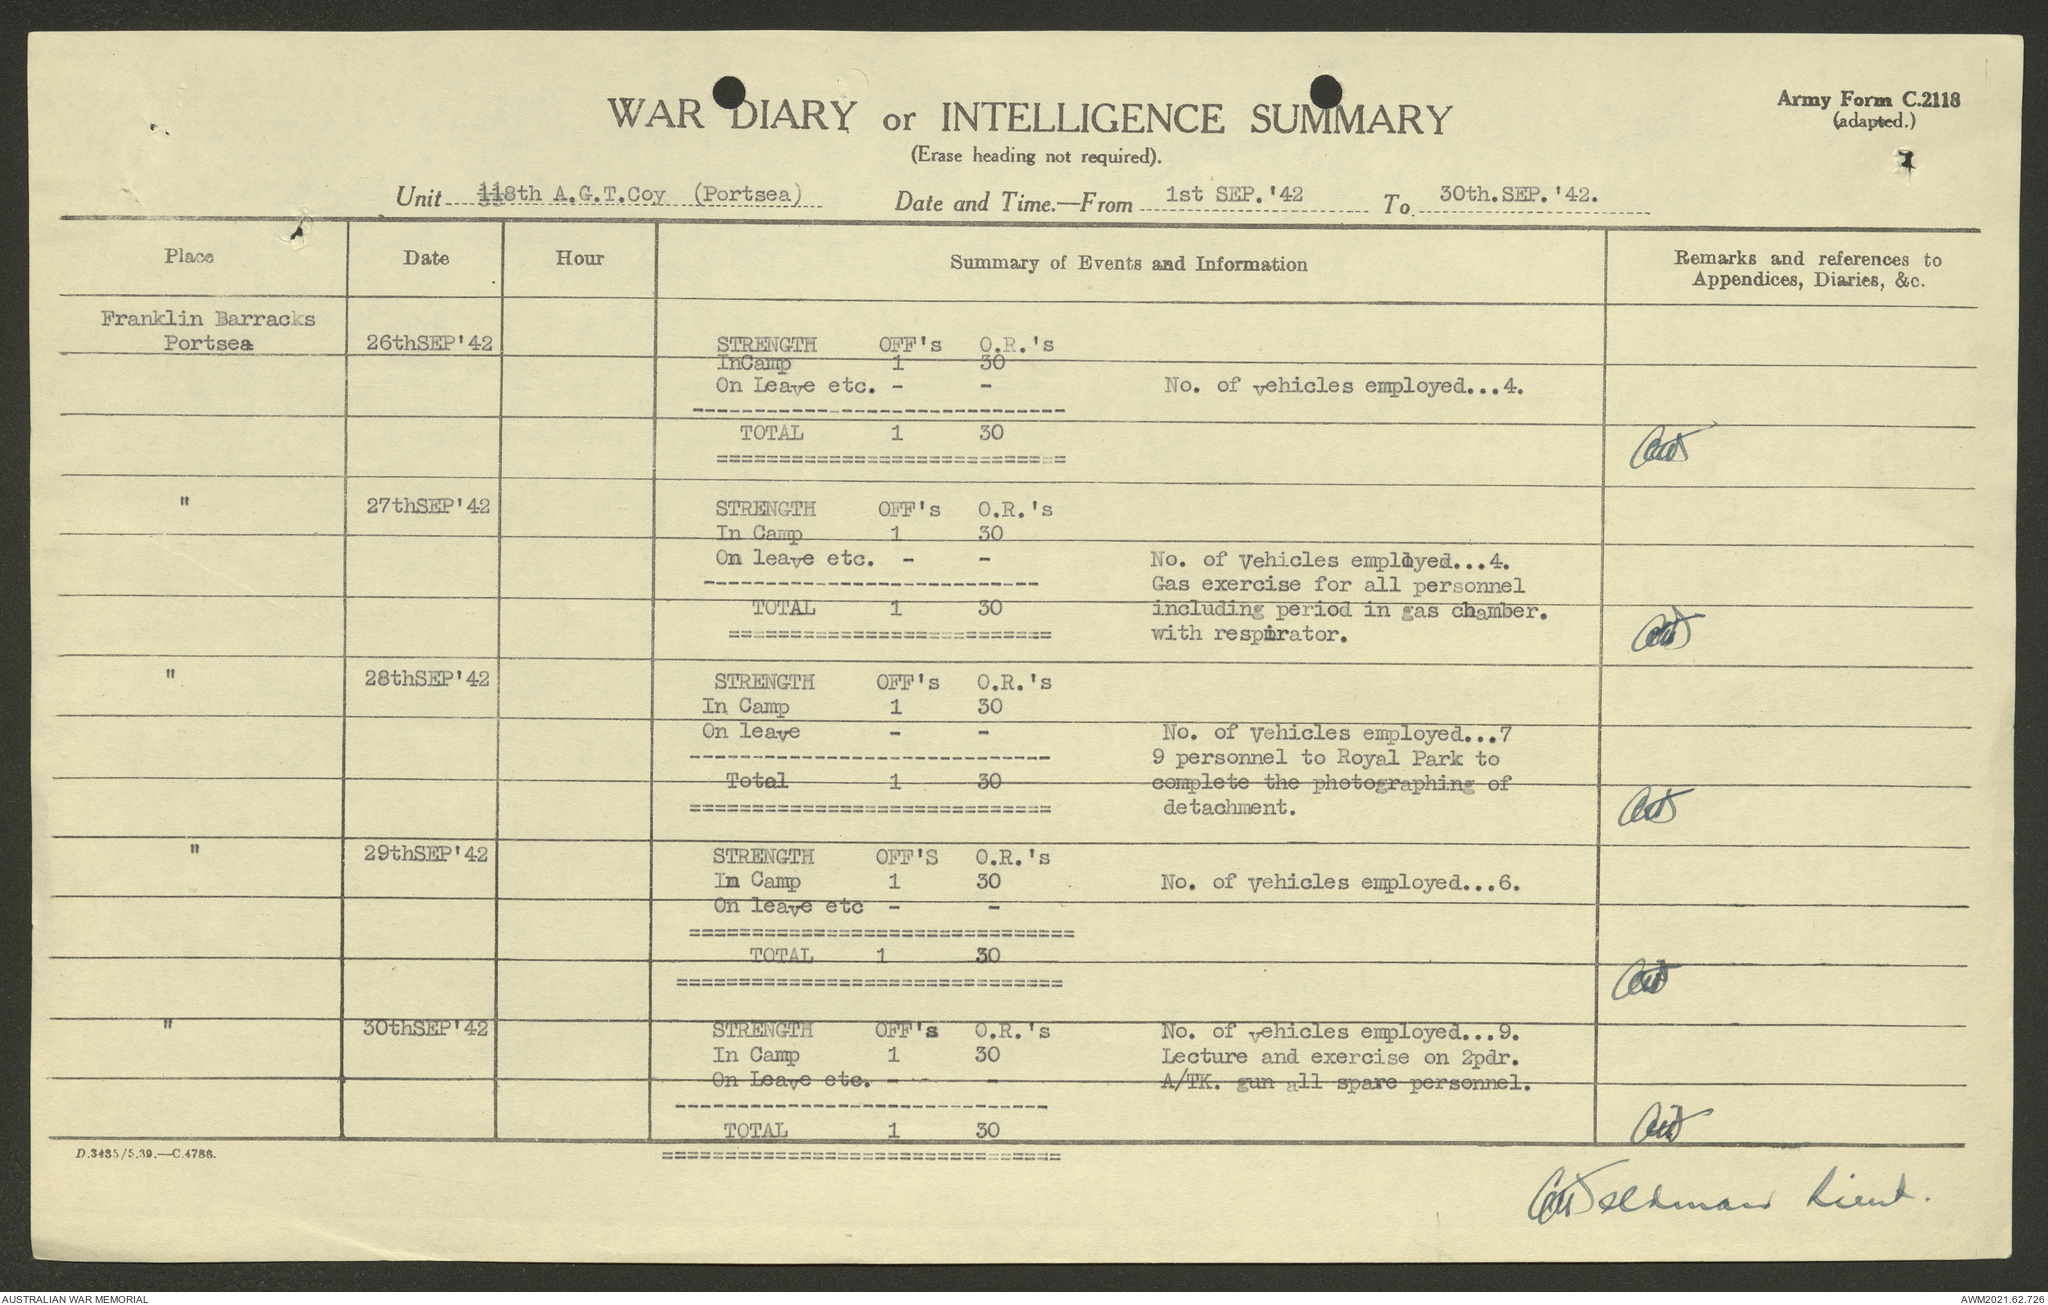 WAR DIARY or INTELLIGENCE SUMMARY
Army Form C.2118
(adapted.)
(Erase heading not required).
Unit 118th A.G.T.Coy (Portsea) Date and Time.—From 1st SEP.'42 To 30th.SEP.'42.
Place Date Hour Summary of Events and Information Remarks and references to
Appendices, Diaries, &c.
Franklin Barracks
Portsea 26thSEP'42 STRENGTH OFF's O.R.'s
InCamp 1 30
On Leave etc. - - No. of vehicles employed...4.
------------------------------
TOTAL 1 30
============================
" 27thSEP'42 STRENGTH OFF's O.R.'s
In Camp 1 30
On leave etc. - - No. of vehicles employed...4.
--------------------------- Gas exercise for all personnel
TOTAL 1 30 including period in gas chamber.
========================== with respirator.
" 28thSEP'42 STRENGTH OFF's O.R.'s
In Camp 1 30
On leave - - No. of vehicles employed...7
----------------------------- 9 personnel to Royal Park to
Total 1 30 complete the photographing of
============================= detachment.
" 29thSEP'42 STRENGTH OFF'S O.R.'s
In Camp 1 30 No. of vehicles employed...6.
On leave etc - -
===============================
TOTAL 1 30
===============================
" 30thSEP'42 STRENGTH OFF's O.R.'s No. of vehicles employed...9.
In Camp 1 30 Lecture and exercise on 2pdr.
On Leave etc. - - A/TK. gun all spare personnel.
------------------------------
TOTAL 1 30
================================
D.3485/5.39.—C.4786.
Lieut.
AUSTRALIAN WAR MEMORIAL
AWM2021.62.726